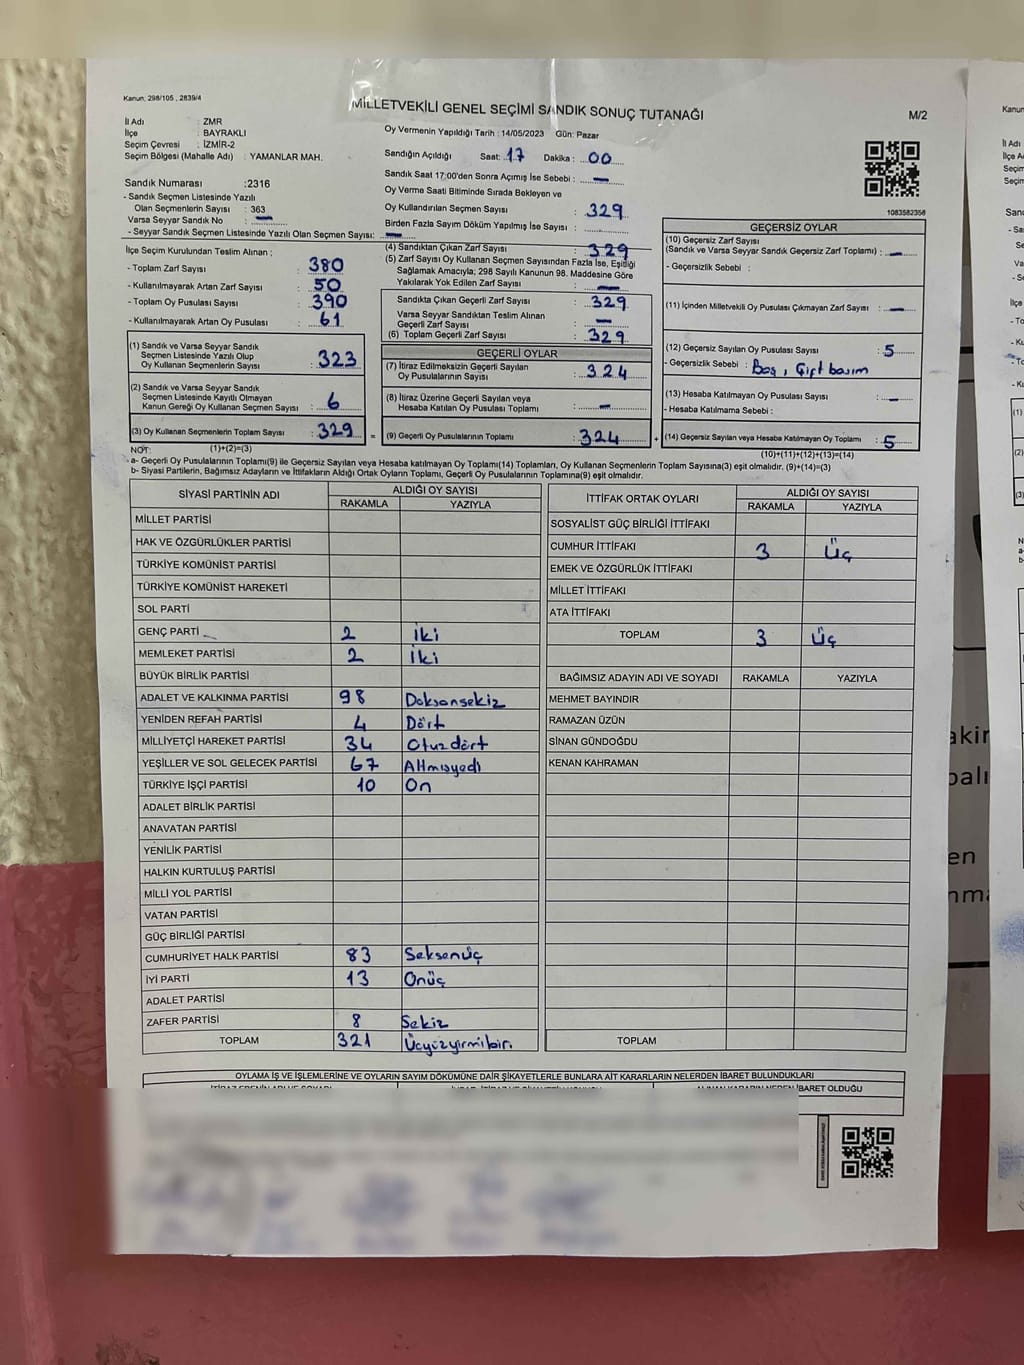 Kanun; 298/105 , 2839/4
MİLLETVEKİLİ GENEL SEÇİMİ SANDIK SONUÇ TUTANAĞI
M/2
İl Adı : ZMR
İlçe : BAYRAKLI
Seçim Çevresi : İZMİR-2
Seçim Bölgesi (Mahalle Adı) : YAMANLAR MAH.
Oy Vermenin Yapıldığı Tarih : 14/05/2023 Gün: Pazar
Sandığın Açıldığı Saat: 17 Dakika : 00
Sandık Saat 17:00'den Sonra Açımış İse Sebebi : —
Oy Verme Saati Bitiminde Sırada Bekleyen ve
Oy Kullandırılan Seçmen Sayısı : 329
Birden Fazla Sayım Döküm Yapılmış İse Sayısı :
Sandık Numarası :2316
- Sandık Seçmen Listesinde Yazılı
Olan Seçmenlerin Sayısı : 363
Varsa Seyyar Sandık No : —
- Seyyar Sandık Seçmen Listesinde Yazılı Olan Seçmen Sayısı: —
1083582356
İlçe Seçim Kurulundan Teslim Alınan ;
- Toplam Zarf Sayısı : 380
- Kullanılmayarak Artan Zarf Sayısı : 50
- Toplam Oy Pusulası Sayısı : 390
- Kullanılmayarak Artan Oy Pusulası : 61
(1) Sandık ve Varsa Seyyar Sandık
Seçmen Listesinde Yazılı Olup
Oy Kullanan Seçmenlerin Sayısı : 323
(2) Sandık ve Varsa Seyyar Sandık
Seçmen Listesinde Kayıtlı Olmayan
Kanun Gereği Oy Kullanan Seçmen Sayısı : 6
(3) Oy Kullanan Seçmenlerin Toplam Sayısı : 329
(1)+(2)=(3)
(4) Sandıktan Çıkan Zarf Sayısı : 329
(5) Zarf Sayısı Oy Kullanan Seçmen Sayısından Fazla İse, Eşitliği
Sağlamak Amacıyla; 298 Sayılı Kanunun 98. Maddesine Göre
Yakılarak Yok Edilen Zarf Sayısı : —
Sandıkta Çıkan Geçerli Zarf Sayısı : 329
Varsa Seyyar Sandıktan Teslim Alınan
Geçerli Zarf Sayısı : —
(6) Toplam Geçerli Zarf Sayısı : 329
GEÇERLİ OYLAR
(7) İtiraz Edilmeksizin Geçerli Sayılan
Oy Pusulalarının Sayısı : 324
(8) İtiraz Üzerine Geçerli Sayılan veya
Hesaba Katılan Oy Pusulası Toplamı : —
= (9) Geçerli Oy Pusulalarının Toplamı : 324 +
GEÇERSİZ OYLAR
(10) Geçersiz Zarf Sayısı
(Sandık ve Varsa Seyyar Sandık Geçersiz Zarf Toplamı) : —
- Geçersizlik Sebebi :
(11) İçinden Milletvekili Oy Pusulası Çıkmayan Zarf Sayısı : —
(12) Geçersiz Sayılan Oy Pusulası Sayısı : 5
- Geçersizlik Sebebi : Boş, Çift basım
(13) Hesaba Katılmayan Oy Pusulası Sayısı : —
- Hesaba Katılmama Sebebi :
(14) Geçersiz Sayılan veya Hesaba Katılmayan Oy Toplamı : 5
(10)+(11)+(12)+(13)=(14)
NOT:
a- Geçerli Oy Pusulalarının Toplamı(9) ile Geçersiz Sayılan veya Hesaba katılmayan Oy Toplamı(14) Toplamları, Oy Kullanan Seçmenlerin Toplam Sayısına(3) eşit olmalıdır. (9)+(14)=(3)
b- Siyasi Partilerin, Bağımsız Adayların ve İttifakların Aldığı Oyların Toplamı, Geçerli Oy Pusulalarının Toplamına(9) eşit olmalıdır.
SİYASİ PARTİNİN ADI ALDIĞI OY SAYISI
RAKAMLA YAZIYLA
MİLLET PARTİSİ
HAK VE ÖZGÜRLÜKLER PARTİSİ
TÜRKİYE KOMÜNİST PARTİSİ
TÜRKİYE KOMÜNİST HAREKETİ
SOL PARTİ
GENÇ PARTİ 2 İki
MEMLEKET PARTİSİ 2 İki
BÜYÜK BİRLİK PARTİSİ
ADALET VE KALKINMA PARTİSİ 98 Doksansekiz
YENİDEN REFAH PARTİSİ 4 Dört
MİLLİYETÇİ HAREKET PARTİSİ 34 Otuzdört
YEŞİLLER VE SOL GELECEK PARTİSİ 67 Altmışyedi
TÜRKİYE İŞÇİ PARTİSİ 10 On
ADALET BİRLİK PARTİSİ
ANAVATAN PARTİSİ
YENİLİK PARTİSİ
HALKIN KURTULUŞ PARTİSİ
MİLLİ YOL PARTİSİ
VATAN PARTİSİ
GÜÇ BİRLİĞİ PARTİSİ
CUMHURİYET HALK PARTİSİ 83 Seksenüç
İYİ PARTİ 13 Onüç
ADALET PARTİSİ
ZAFER PARTİSİ 8 Sekiz
TOPLAM 321 Üçyüzyirmibir.
İTTİFAK ORTAK OYLARI ALDIĞI OY SAYISI
RAKAMLA YAZIYLA
SOSYALİST GÜÇ BİRLİĞİ İTTİFAKI
CUMHUR İTTİFAKI 3 Üç
EMEK VE ÖZGÜRLÜK İTTİFAKI
MİLLET İTTİFAKI
ATA İTTİFAKI
TOPLAM 3 Üç
BAĞIMSIZ ADAYIN ADI VE SOYADI RAKAMLA YAZIYLA
MEHMET BAYINDIR
RAMAZAN ÜZÜN
SİNAN GÜNDOĞDU
KENAN KAHRAMAN
TOPLAM
OYLAMA İŞ VE İŞLEMLERİNE VE OYLARIN SAYIM DÖKÜMÜNE DAİR ŞİKAYETLERLE BUNLARA AİT KARARLARIN NELERDEN İBARET BULUNDUKLARI
İBARET OLDUĞU